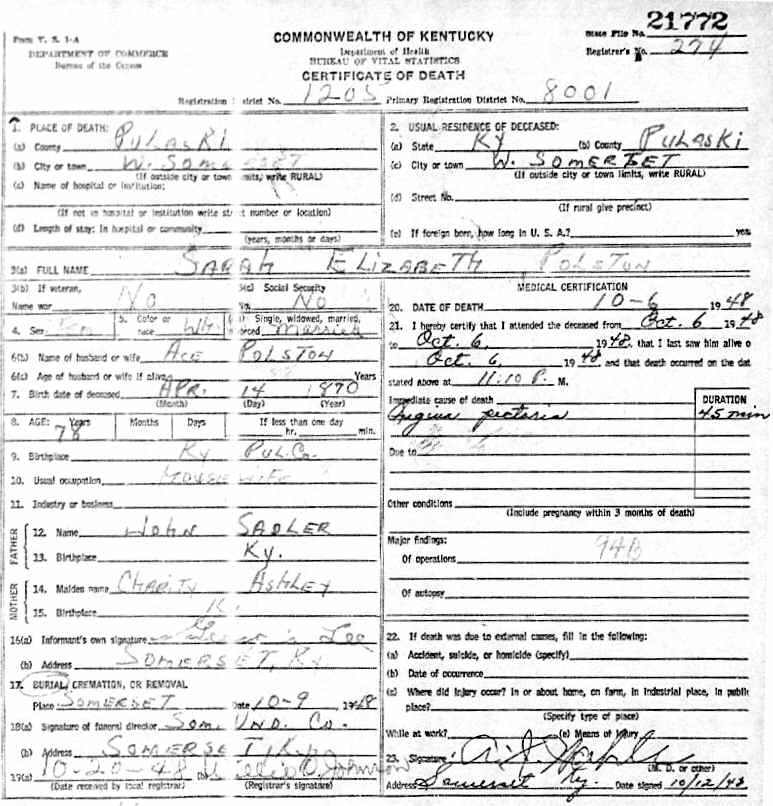 21772
Form V. S. 1-A
DEPARTMENT OF COMMERCE
Bureau of the Census
COMMONWEALTH OF KENTUCKY
Department of Health
BUREAU OF VITAL STATISTICS
CERTIFICATE OF DEATH
State File No.
Registrar's No. 274
Registration District No. 1205 Primary Registration District No. 8001
1. PLACE OF DEATH:
(a) County PULASKI
(b) City or town W. SOMERSET
(If outside city or town limits, write RURAL)
(c) Name of hospital or institution:
(If not in hospital or institution write street number or location)
(d) Length of stay: In hospital or community
(years, months or days)
2. USUAL RESIDENCE OF DECEASED:
(a) State KY (b) County PULASKI
(c) City or town W. SOMERSET
(If outside city or town limits, write RURAL)
(d) Street No.
(If rural give precinct)
(e) If foreign born, how long in U. S. A.? years
3(a) FULL NAME SARAH ELIZABETH POLSTON
3(b) If veteran, 3(c) Social Security
Name war No No. No
4. Sex 5. Color or race Wh 6(a) Single, widowed, married, divorced Married
6(b) Name of husband or wife ACE POLSTON
6(c) Age of husband or wife if alive Years
7. Birth date of deceased APR. 14 1870
(Month) (Day) (Year)
8. AGE: Years Months Days If less than one day
78 hr. min.
9. Birthplace Ky Pul. Co.
10. Usual occupation HOUSEWIFE
11. Industry or business
FATHER
12. Name JOHN SADLER
13. Birthplace Ky.
MOTHER
14. Maiden name CHARITY ASHLEY
15. Birthplace K
16(a) Informant's own signature Lee
(b) Address SOMERSET, Ky
17. BURIAL, CREMATION, OR REMOVAL
Place SOMERSET Date 10-9 1948
18(a) Signature of funeral director Som. UND. Co.
(b) Address SOMERSET, Ky
19(a) 10-20-48 (b) Johnson
(Date received by local registrar) (Registrar's signature)
MEDICAL CERTIFICATION
20. DATE OF DEATH 10-6 1948
21. I hereby certify that I attended the deceased from Oct. 6 1948
to Oct. 6, 1948, that I last saw him alive o
Oct. 6, 1948 and that death occurred on the dat
stated above at 11:10 P. M.
Immediate cause of death DURATION
Angina pectoris 45 min
Due to
Other conditions
(Include pregnancy within 3 months of death)
Major findings: 94B
Of operations
Of autopsy
22. If death was due to external causes, fill in the following:
(a) Accident, suicide, or homicide (specify)
(b) Date of occurrence
(c) Where did injury occur? In or about home, on farm, in industrial place, in public
place?
(Specify type of place)
While at work? (e) Means of Injury
23. Signature
(M. D. or other)
Address Somerset Ky. Date signed 10/12/48